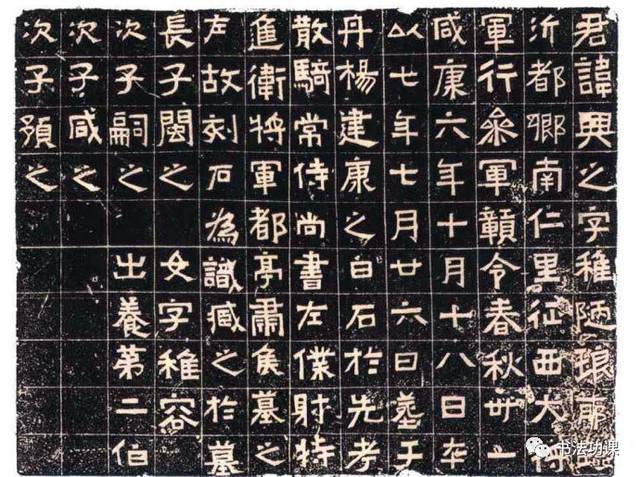 君諱興之字稚陋琅耶臨
沂都鄉南仁里征西大將
軍行參軍贛令春秋卅一
咸康六年十月十八日卒
以七年七月廿六日葬于
丹楊建康之白石於先考
散騎常侍尚書左僕射特
進衛將軍都亭肅侯墓之
左故刻石為識臧之於墓
長子閩之 女字稚容
次子嗣之 出養第二伯
次子咸之
次子預之
书法功课